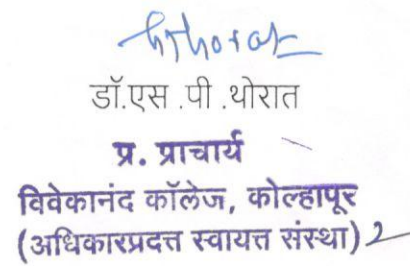 डॉ.एस .पी .थोरात
प्र. प्राचार्य
विवेकानंद कॉलेज, कोल्हापूर
(अधिकारप्रदत्त स्वायत्त संस्था)